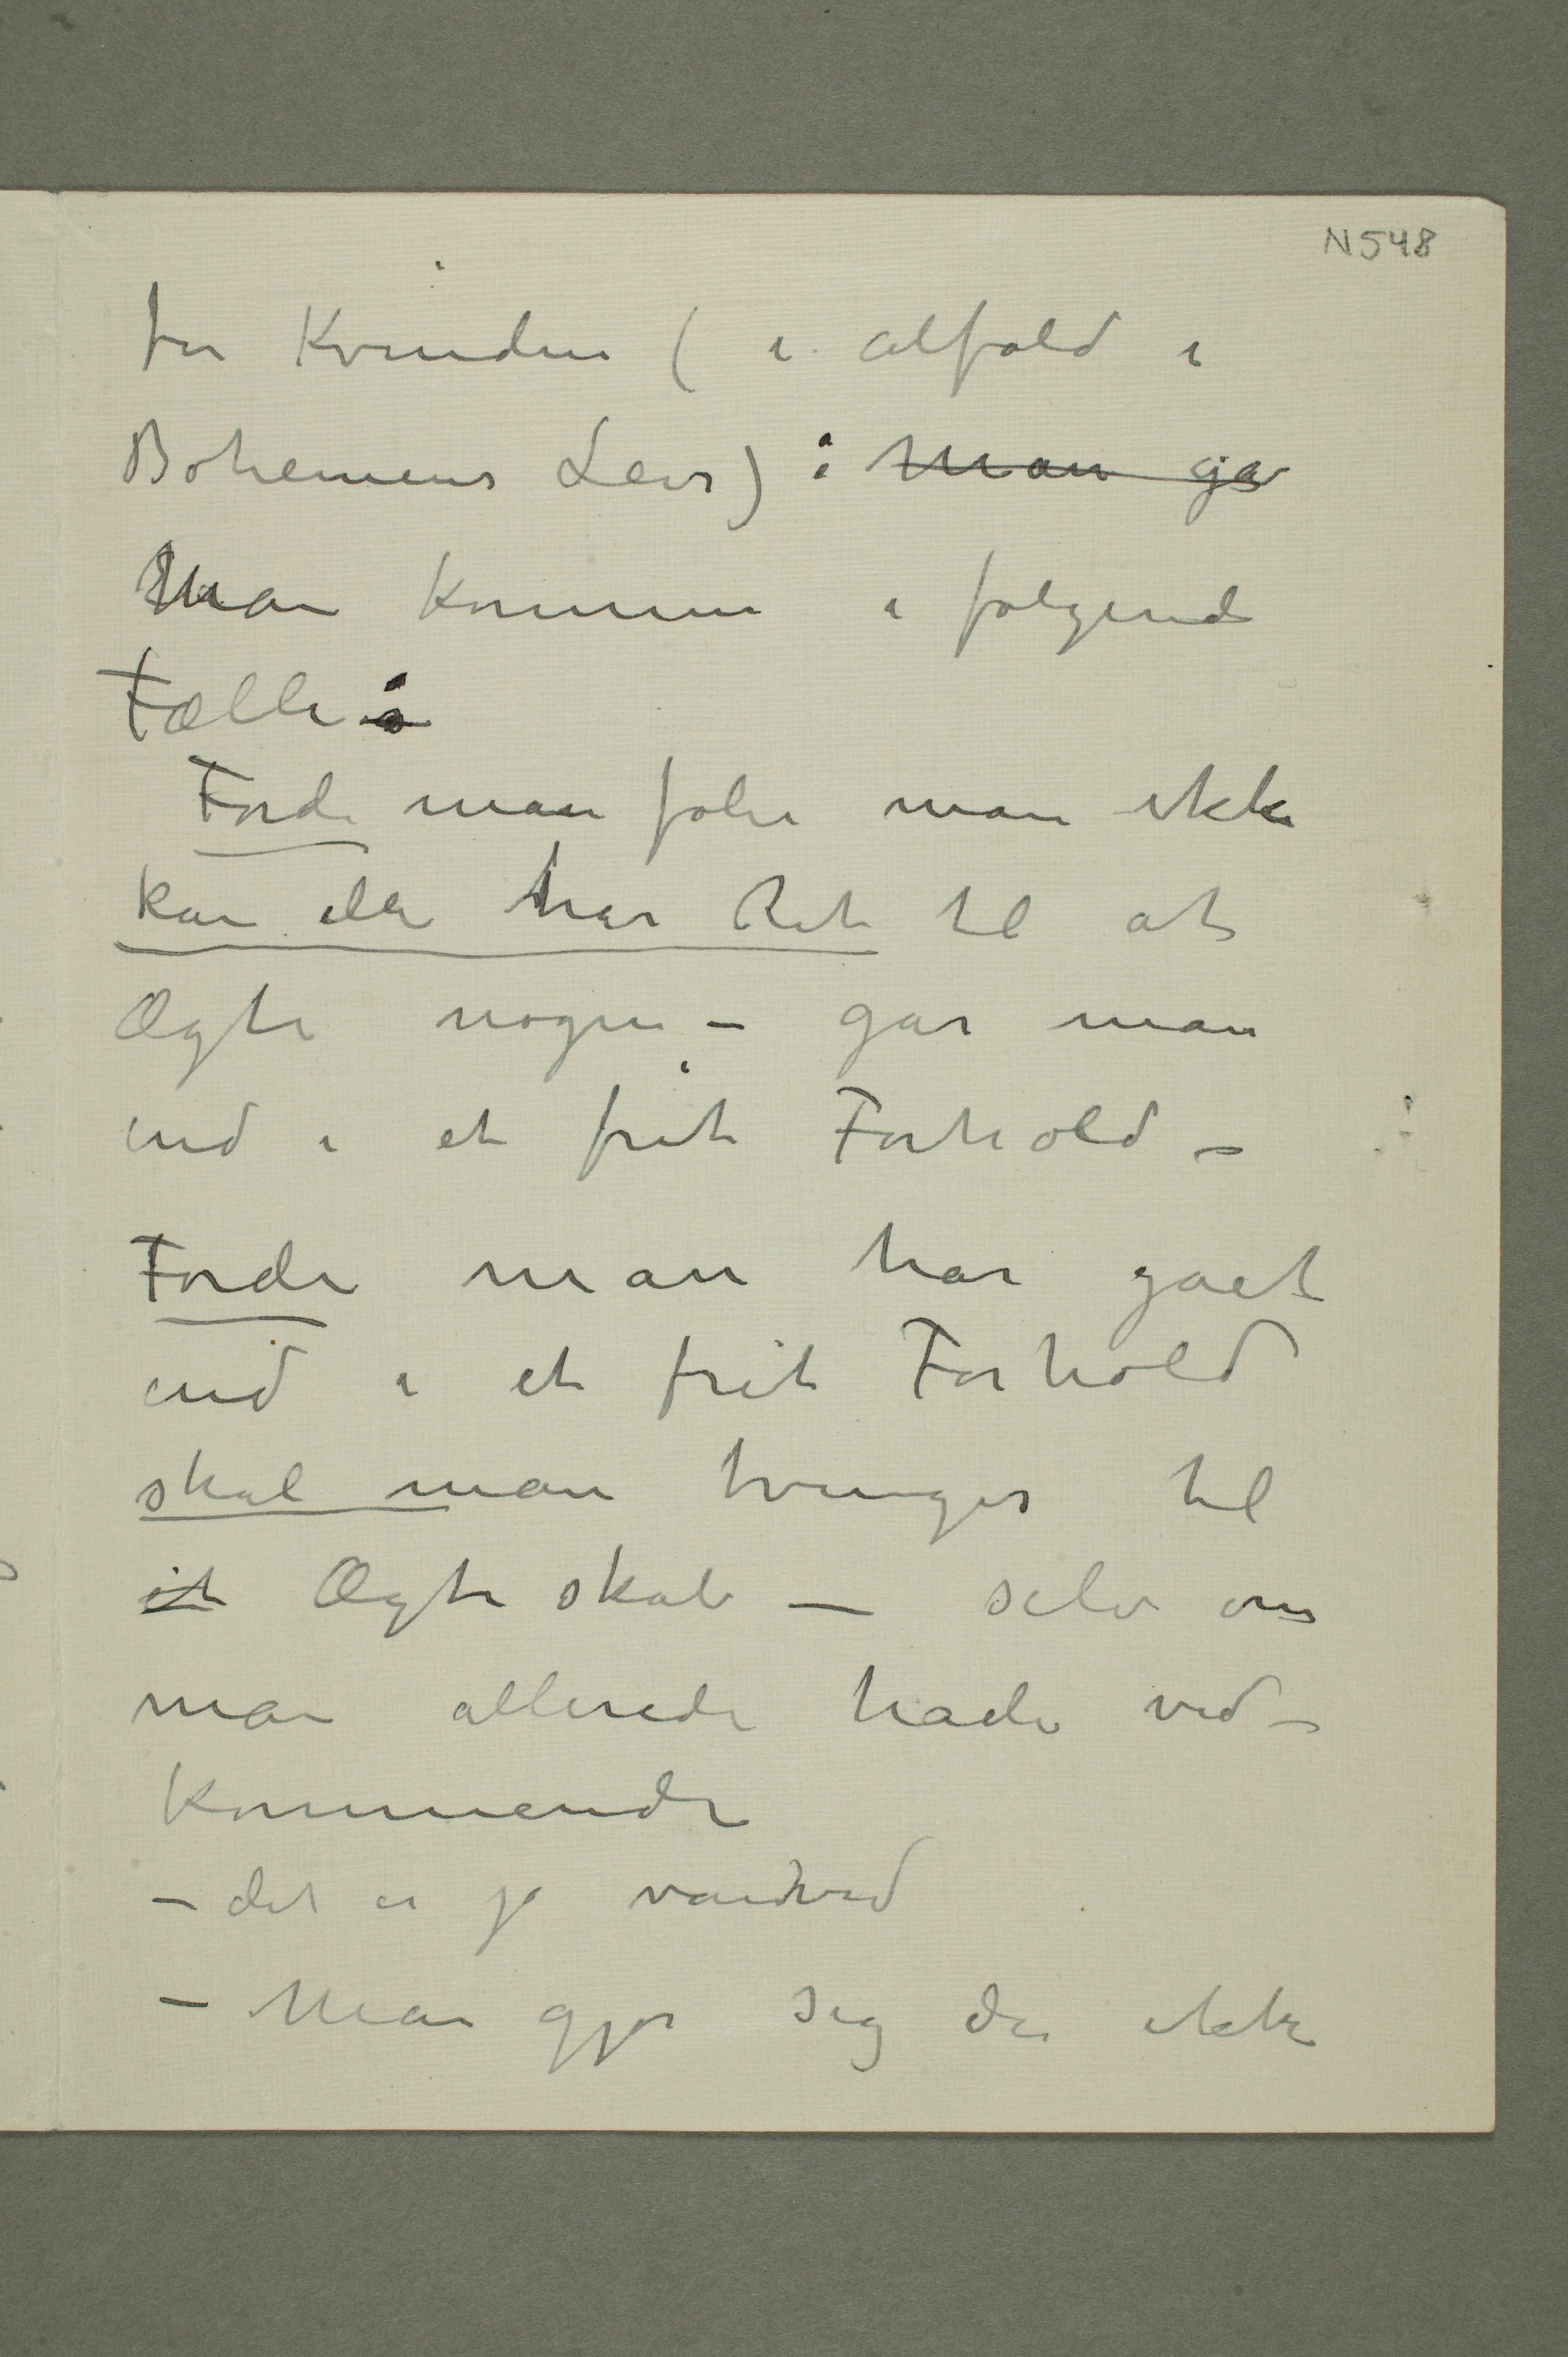 N548
for Kvinden (i alfald i
Bohemens Leir) : Man gå
Man kommer i følgende
Fælle :
Fordi man føler man ikke
kan eller har Ret til at
Ægte nogen – går man
ind i et frit Forhold –
Fordi man har gået
ind i et frit Forhold
skal man tvinges til
et Ægteskab – selv om
man allerede hader ved-
kommende
– det er jo vandvid
– Man gjør sig da ikke